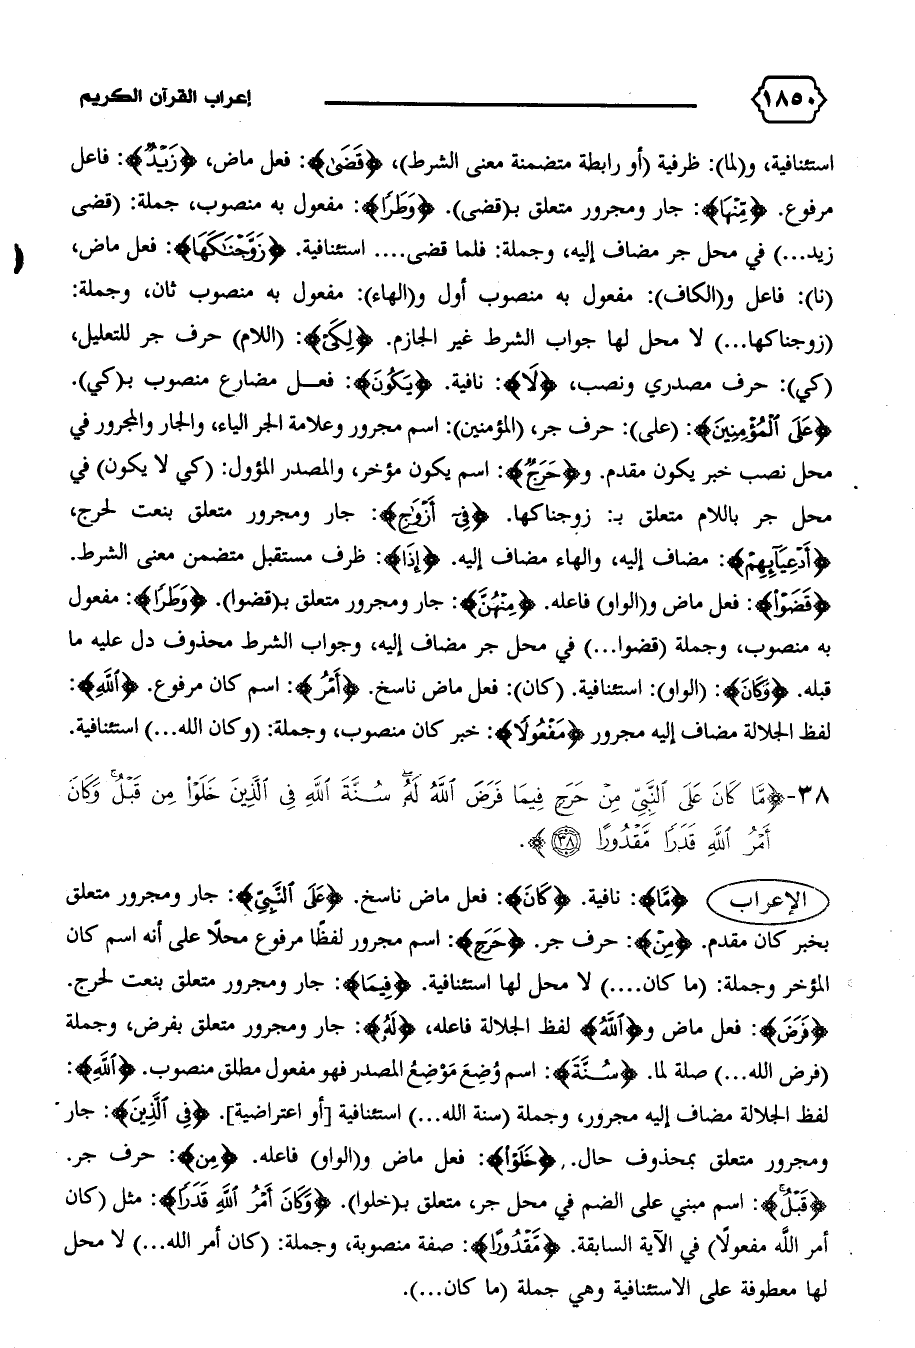 ١٨٥٠ إعراب القرآن الكريم
استئنافية، و(لما): ظرفية (أو رابطة متضمنة معنى الشرط)، ﴿قَضَىٰ﴾: فعل ماض، ﴿زَيْدٌ﴾: فاعل
مرفوع. ﴿مِّنْهَا﴾: جار ومجرور متعلق بـ(قضى). ﴿وَطَرًا﴾: مفعول به منصوب، جملة: (قضى
زيد...) في محل جر مضاف إليه، وجملة: فلما قضى.... استئنافية. ﴿زَوَّجْنَٰكَهَا﴾: فعل ماض،
(نا): فاعل و(الكاف): مفعول به منصوب أول و(الهاء): مفعول به منصوب ثان، وجملة:
(زوجناكها...) لا محل لها جواب الشرط غير الجازم. ﴿لِكَىْ﴾: (اللام) حرف جر للتعليل،
(كي): حرف مصدري ونصب، ﴿لَا﴾: نافية. ﴿يَكُونَ﴾: فعل مضارع منصوب بـ(كي).
﴿عَلَى ٱلْمُؤْمِنِينَ﴾: (على): حرف جر، (المؤمنين): اسم مجرور وعلامة الجر الياء، والجار والمجرور في
محل نصب خبر يكون مقدم. و﴿حَرَجٌ﴾: اسم يكون مؤخر، والمصدر المؤول: (كي لا يكون) في
محل جر باللام متعلق بـ: زوجناكها. ﴿فِىٓ أَزْوَٰجِ﴾: جار ومجرور متعلق بنعت لحرج،
﴿أَدْعِيَآئِهِمْ﴾: مضاف إليه، والهاء مضاف إليه. ﴿إِذَا﴾: ظرف مستقبل متضمن معنى الشرط.
﴿قَضَوْا۟﴾: فعل ماض و(الواو) فاعله. ﴿مِنْهُنَّ﴾: جار ومجرور متعلق بـ(قضوا). ﴿وَطَرًا﴾: مفعول
به منصوب، وجملة (قضوا...) في محل جر مضاف إليه، وجواب الشرط محذوف دل عليه ما
قبله. ﴿وَكَانَ﴾: (الواو): استئنافية. (كان): فعل ماض ناسخ. ﴿أَمْرُ﴾: اسم كان مرفوع. ﴿ٱللَّهِ﴾:
لفظ الجلالة مضاف إليه مجرور ﴿مَفْعُولًا﴾: خبر كان منصوب، وجملة: (وكان الله...) استئنافية.
٣٨-﴿مَّا كَانَ عَلَى ٱلنَّبِىِّ مِنْ حَرَجٍ فِيمَا فَرَضَ ٱللَّهُ لَهُۥ ۖ سُنَّةَ ٱللَّهِ فِى ٱلَّذِينَ خَلَوْا۟ مِن قَبْلُ ۚ وَكَانَ
أَمْرُ ٱللَّهِ قَدَرًا مَّقْدُورًا ٣٨﴾.
الإعراب ﴿مَّا﴾: نافية. ﴿كَانَ﴾: فعل ماض ناسخ. ﴿عَلَى ٱلنَّبِىِّ﴾: جار ومجرور متعلق
بخبر كان مقدم. ﴿مِنْ﴾: حرف جر. ﴿حَرَجٍ﴾: اسم مجرور لفظًا مرفوع محلًا على أنه اسم كان
المؤخر وجملة: (ما كان....) لا محل لها استئنافية. ﴿فِيمَا﴾: جار ومجرور متعلق بنعت لحرج.
﴿فَرَضَ﴾: فعل ماض و﴿ٱللَّهُ﴾ لفظ الجلالة فاعله، ﴿لَهُۥ﴾: جار ومجرور متعلق بفرض، وجملة
(فرض الله...) صلة لما. ﴿سُنَّةَ﴾: اسم وُضِعَ مَوْضِعُ المصدر فهو مفعول مطلق منصوب. ﴿ٱللَّهِ﴾:
لفظ الجلالة مضاف إليه مجرور، وجملة (سنة الله...) استئنافية [أو اعتراضية]. ﴿فِى ٱلَّذِينَ﴾: جار
ومجرور متعلق بمحذوف حال. ﴿خَلَوْا۟﴾: فعل ماض و(الواو) فاعله. ﴿مِن﴾: حرف جر.
﴿قَبْلُ ۚ﴾: اسم مبني على الضم في محل جر، متعلق بـ(خلوا). ﴿وَكَانَ أَمْرُ ٱللَّهِ قَدَرًا﴾: مثل (كان
أمر اللَّه مفعولًا) في الآية السابقة. ﴿مَّقْدُورًا﴾: صفة منصوبة، وجملة: (كان أمر الله...) لا محل
لها معطوفة على الاستئنافية وهي جملة (ما كان...).